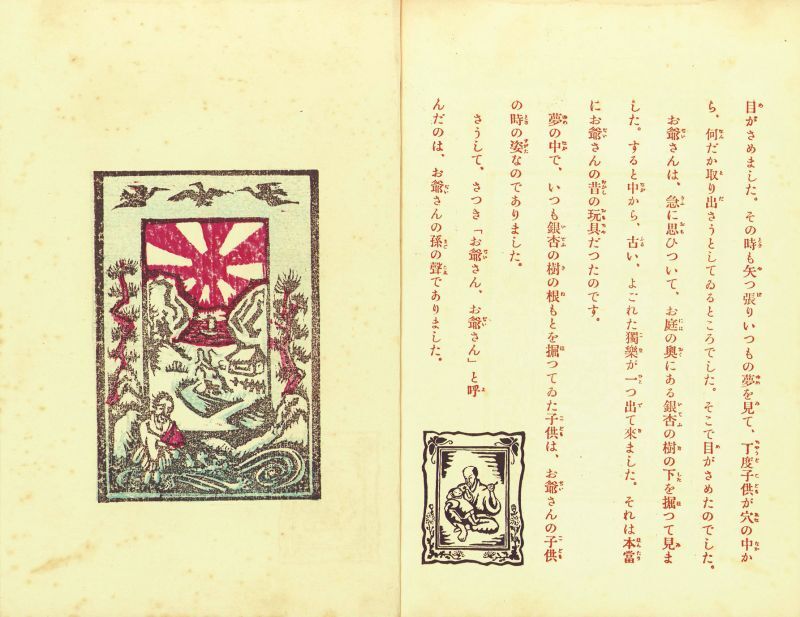 目がさめました。その時も矢つ張りいつもの夢を見て、丁度子供が穴の中か
ら、何だか取り出さうとしてゐるところでした。そこで目がさめたのでした。
お爺さんは、急に思ひついて、お庭の奥にある銀杏の樹の下を掘つて見ま
した。すると中から、古い、よごれた獨樂が一つ出て來ました。それは本當
にお爺さんの昔の玩具だつたのです。
夢の中で、いつも銀杏の樹の根もとを掘つてゐた子供は、お爺さんの子供
の時の姿なのでありました。
さうして、さつき「お爺さん、お爺さん」と呼
んだのは、お爺さんの孫の聲でありました。